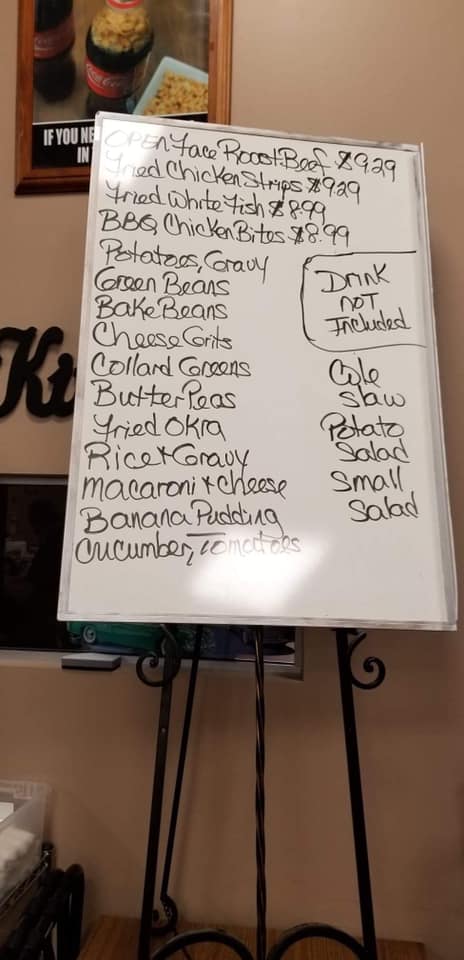 IF YOU NE
IN
Coca-Cola
OPEN Face Roost Beef $9.29
Fried Chicken Strips $9.29
Fried White Fish $8.99
BBQ Chicken Bites $8.99
Potatoes, Gravy
Green Beans
Bake Beans
Cheese Grits
Collard Greens
Butter Peas
Fried Okra
Rice + Gravy
Macaroni + Cheese
Banana Pudding
Cucumber, Tomatoes
Drink
NOT
Included
Cole
Slaw
Potato
Salad
Small
Salad
Ki